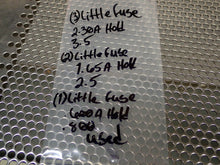 (3) Littlefuse
2.30A Hold
3.5
(2) Littlefuse
1.65A Hold
2.5
(1) Littlefuse
600A Hold
.800
used